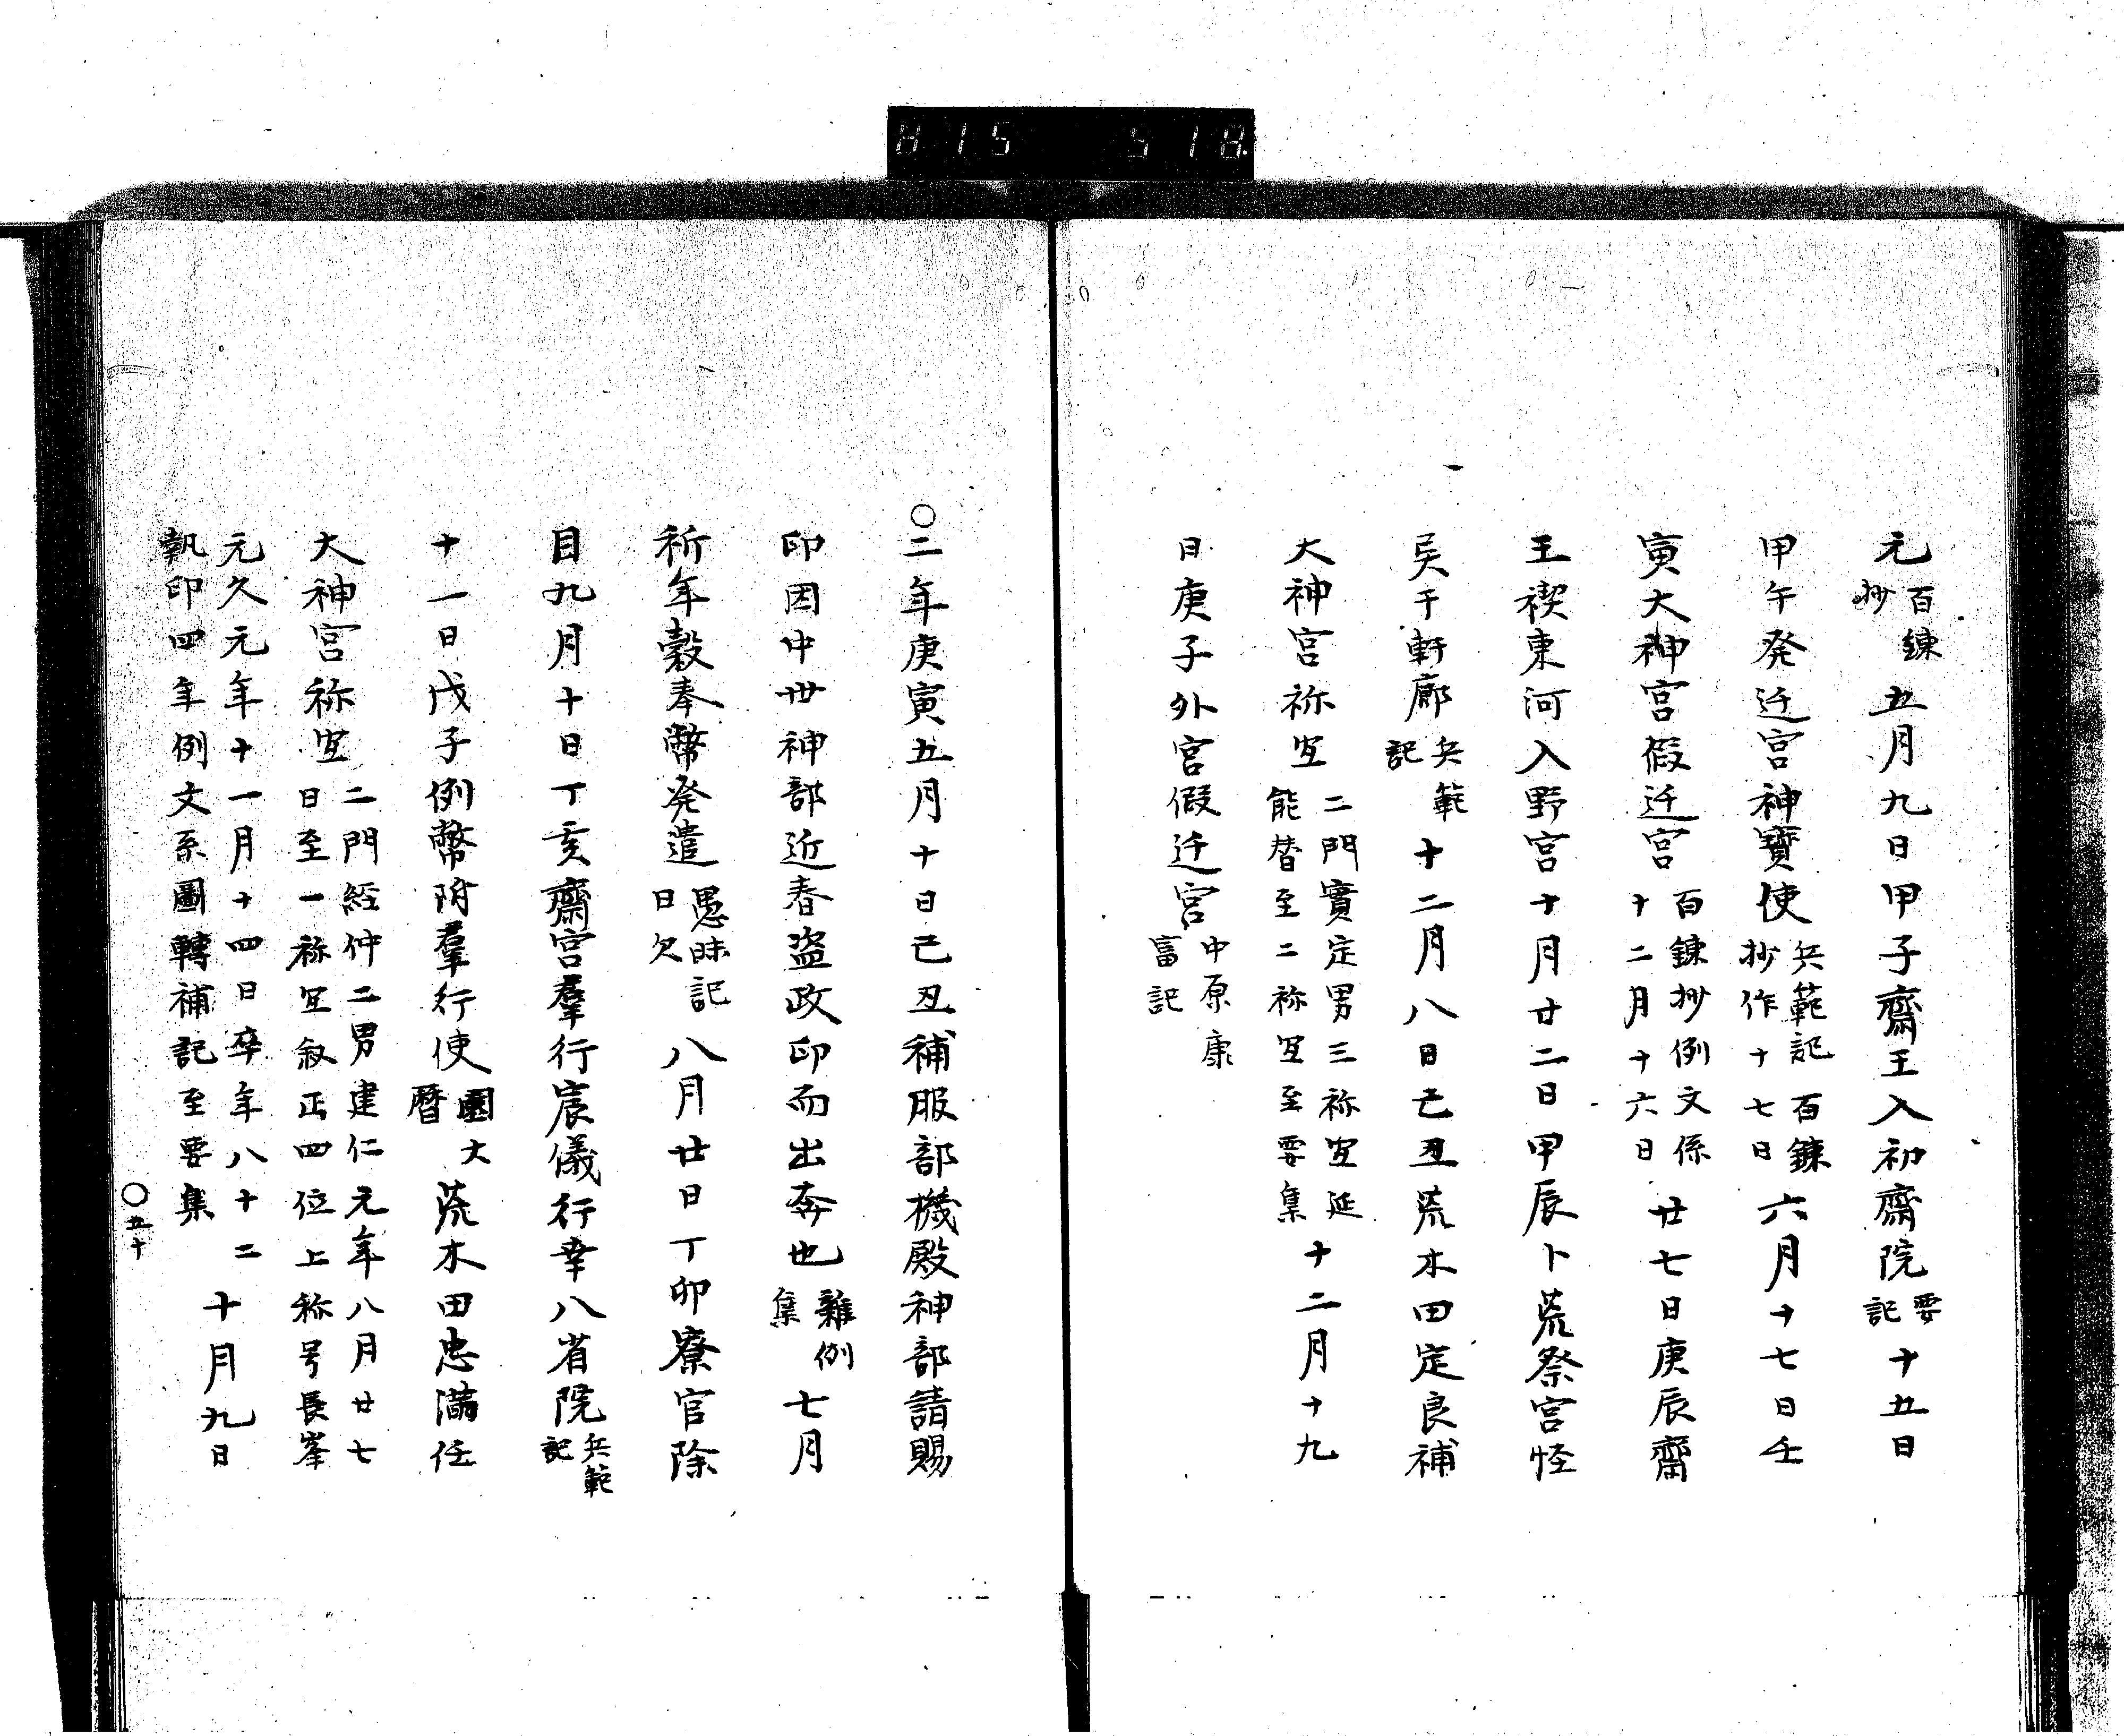 815 518
元百練抄五月九日甲子齋王入初齋院要記十五日
甲午発迁宮神寶使兵範記百錬抄作十七日六月十七日壬
寅大神宮假迁宮百錬抄例文係十二月十六日廿七日庚辰齋
王禊東河入野宮十月廿二日甲辰卜荒祭宮怪
異于軒廊兵範記十二月八日己丑荒木田定良補
大神宮祢宜二門實定男三祢宜延能替至二祢宜至要集十二月十九
日庚子外宮假迁宮中原康富記
○二年庚寅五月十日己丑補服部機殿神部請賜
印因中世神部近春盗政印而出奔也雜例集七月
祈年穀奉幣発遣愚昧記日欠八月廿日丁卯寮官除
目九月十日丁亥齋宮羣行宸儀行幸八省院兵範記
十一日戊子例幣附羣行使園大暦荒木田忠満任
大神宮祢宜二門經仲二男建仁元年八月廿七日至一祢宜叙正四位上称号長峯
元久元年十一月十四日卒年八十二執印四年例文系圖轉補記至要集十月九日
○五十